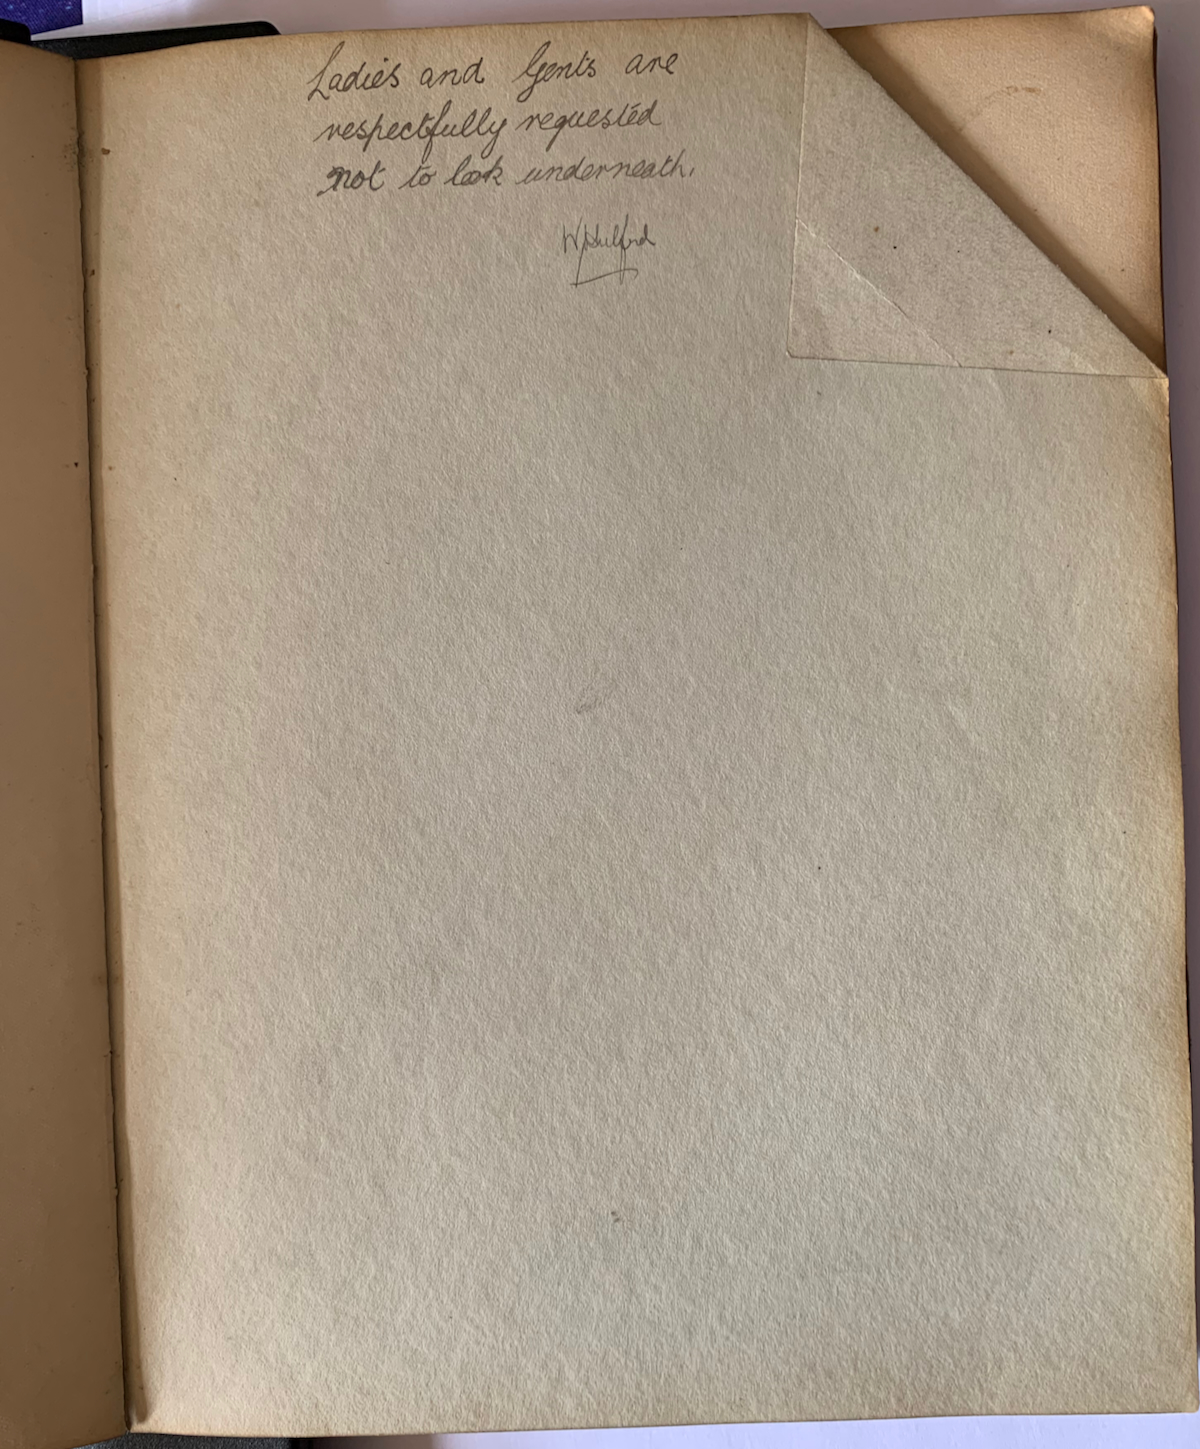 Ladies and Gents are
respectfully requested
not to look underneath.